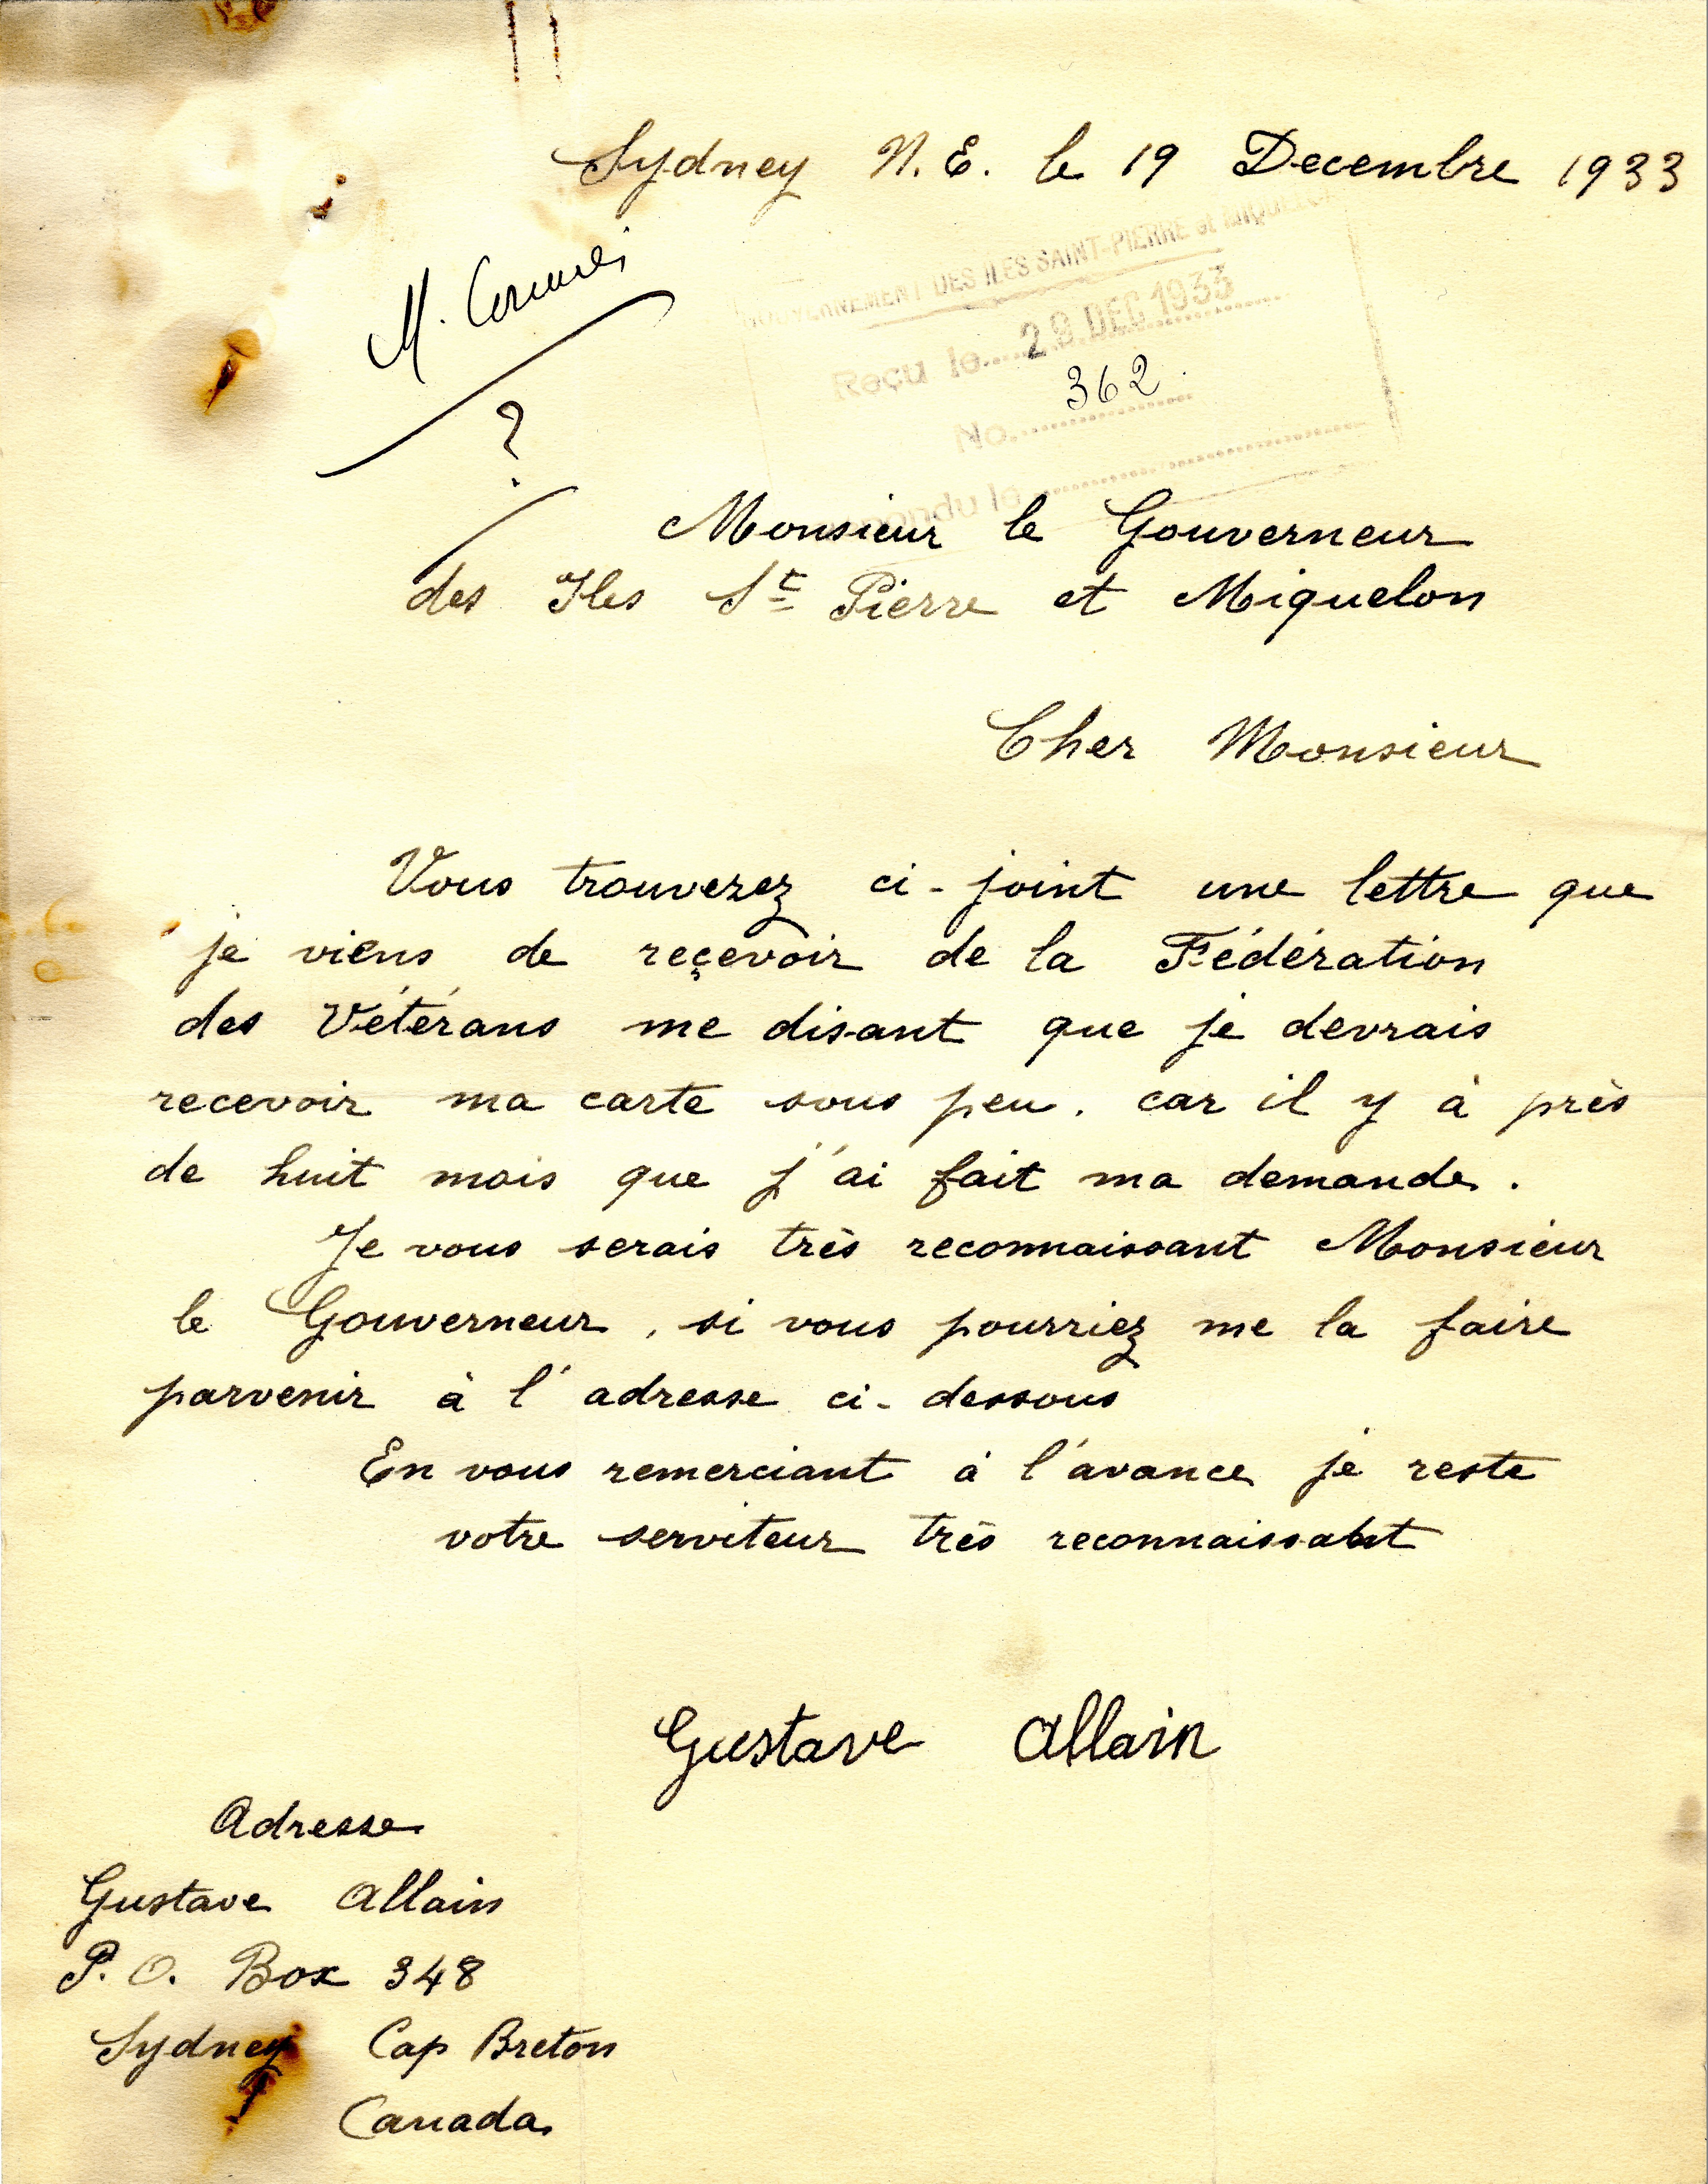 Sydney N.E. le 19 Decembre 1933
M.
?
GOUVERNEMENT DES ILES SAINT-PIERRE et MIQUELON
Reçu le 29 DEC 1933
No. 362
Répondu le
Monsieur le Gouverneur
des Iles St Pierre et Miquelon
Cher Monsieur
Vous trouverez ci-joint une lettre que
je viens de reçevoir de la Fédération
des Vétérans me disant que je devrais
recevoir ma carte sous peu. car il y à près
de huit mois que j'ai fait ma demande.
Je vous serais très reconnaissant Monsieur
le Gouverneur, si vous pourriez me la faire
parvenir à l'adresse ci-dessous
En vous remerciant à l'avance je reste
votre serviteur très reconnaissant
Gustave Allain
Adresse
Gustave Allain
P.O. Box 348
Sydney Cap Breton
Canada